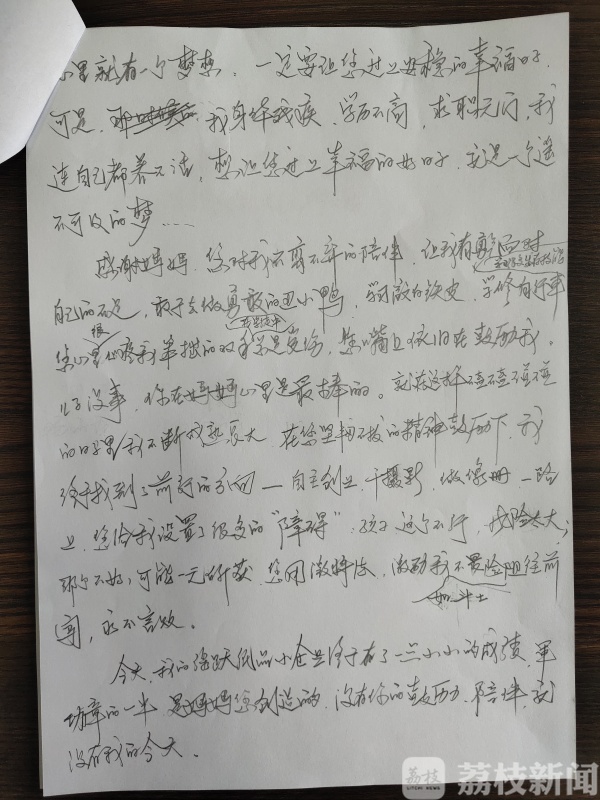 心里就有一个梦想，一定要让您过上安稳的幸福日子，
可是，我身体残疾，学历不高，求职无门，我
连自己都养不活，想让您过上幸福的好日子，就是一个遥
不可及的梦……
感谢妈妈，您对我不离不弃的陪伴，让我有勇气面对
自己的不足，敢于去做勇敢的丑小鸭，学习，学修自行车
在学徒中
您心里心疼我笨拙的双手总是受伤，您嘴上依旧在鼓励我。
很
儿子没事，你在妈妈心里是最棒的。就在这样
的日子里我不断成熟长大，在您坚韧不拔的精神鼓励下，我
终于找到了前行的方向—自主创业，干摄影，做像册，一路
上，您给我设置了很多的“障碍”，孩子这个不行，风险太大；
那个不好，可能一无所获，您用激将法，激励我不畏险阻往前
如斗士
闯，永不言败。
今天，我的纸品小企业终于有了一点小小的成绩，军
功章的一半是妈妈您创造的，没有你的鼓励，陪伴，就
没有我的今天。
荔枝
LITCHI NEWS
荔枝新闻